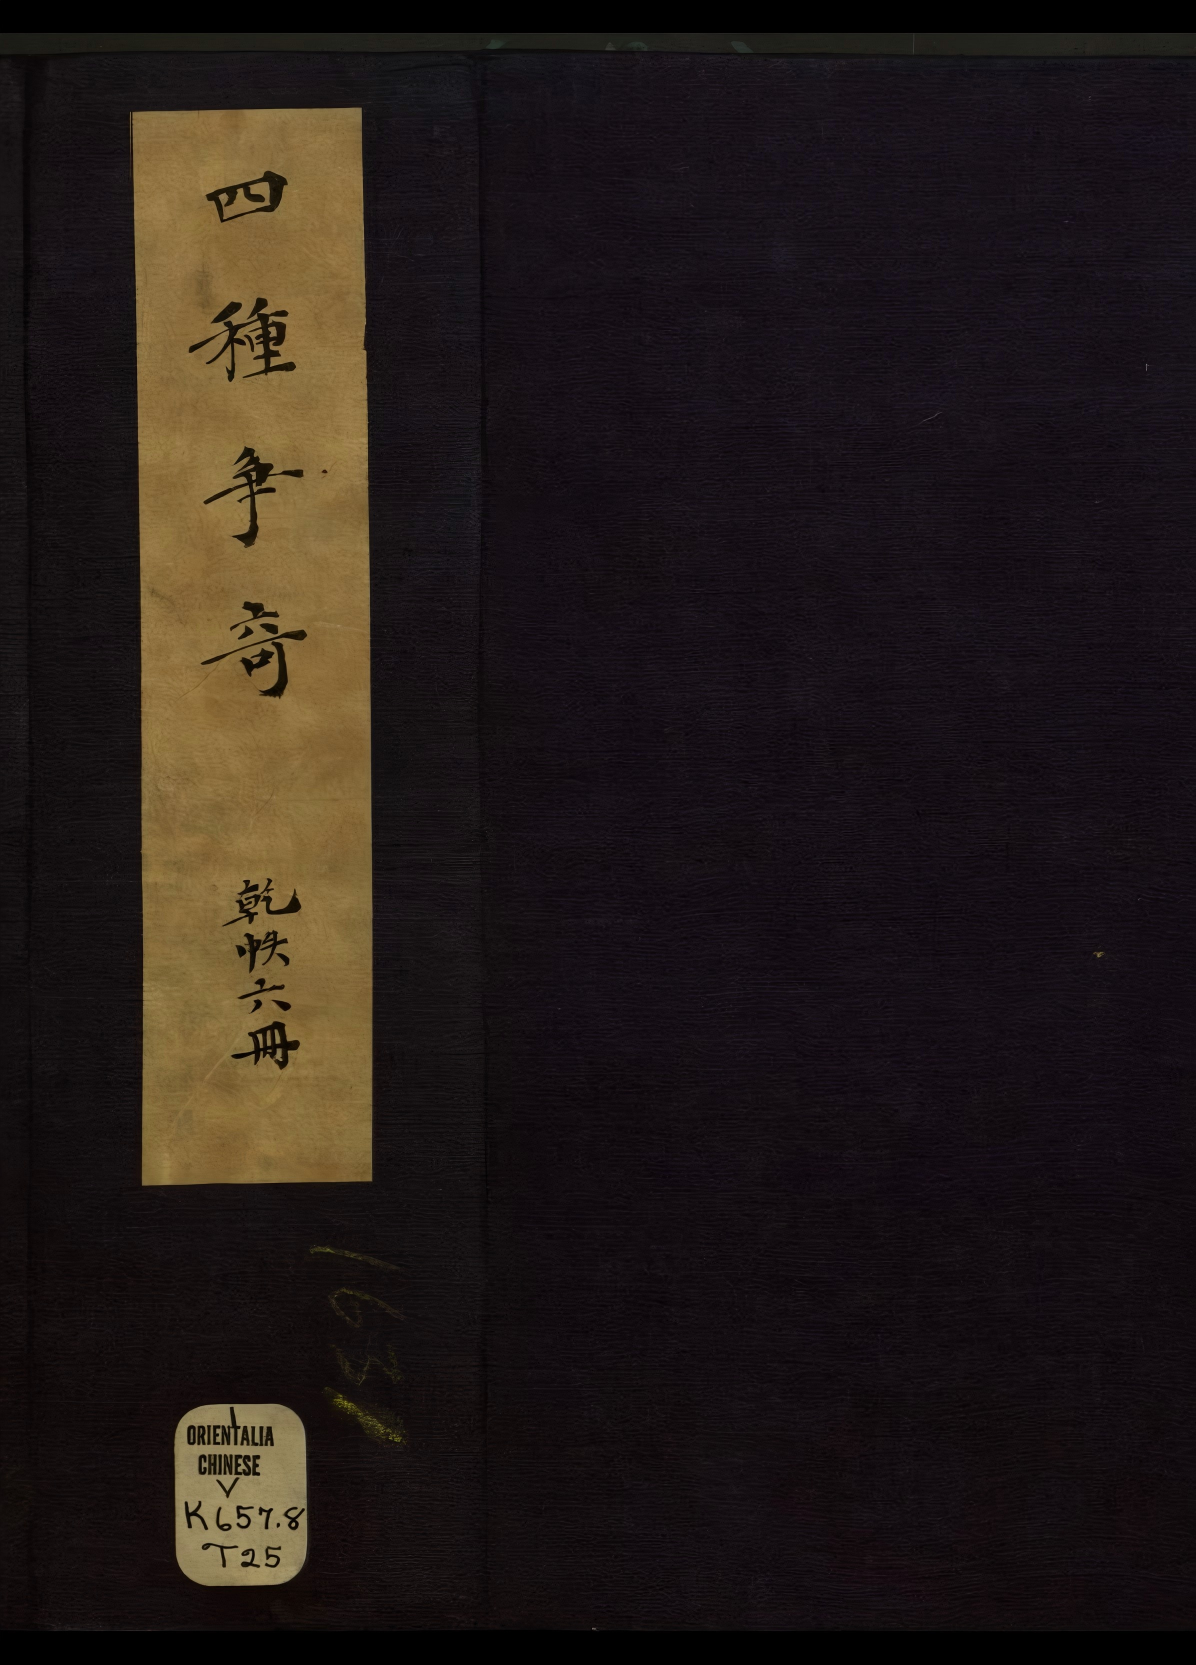 四種争奇
乾帙六冊
1931
ORIENTALIA
CHINESE
V
K657.8
T25